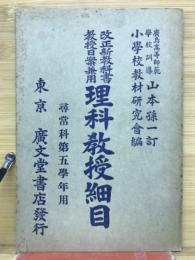 廣島高等師範
學校訓導 山本孫一訂
小學校教材研究會編
改正新教科書
教授日案兼用
理科教授細目
尋常科第五學年用
東京 廣文堂書店發行